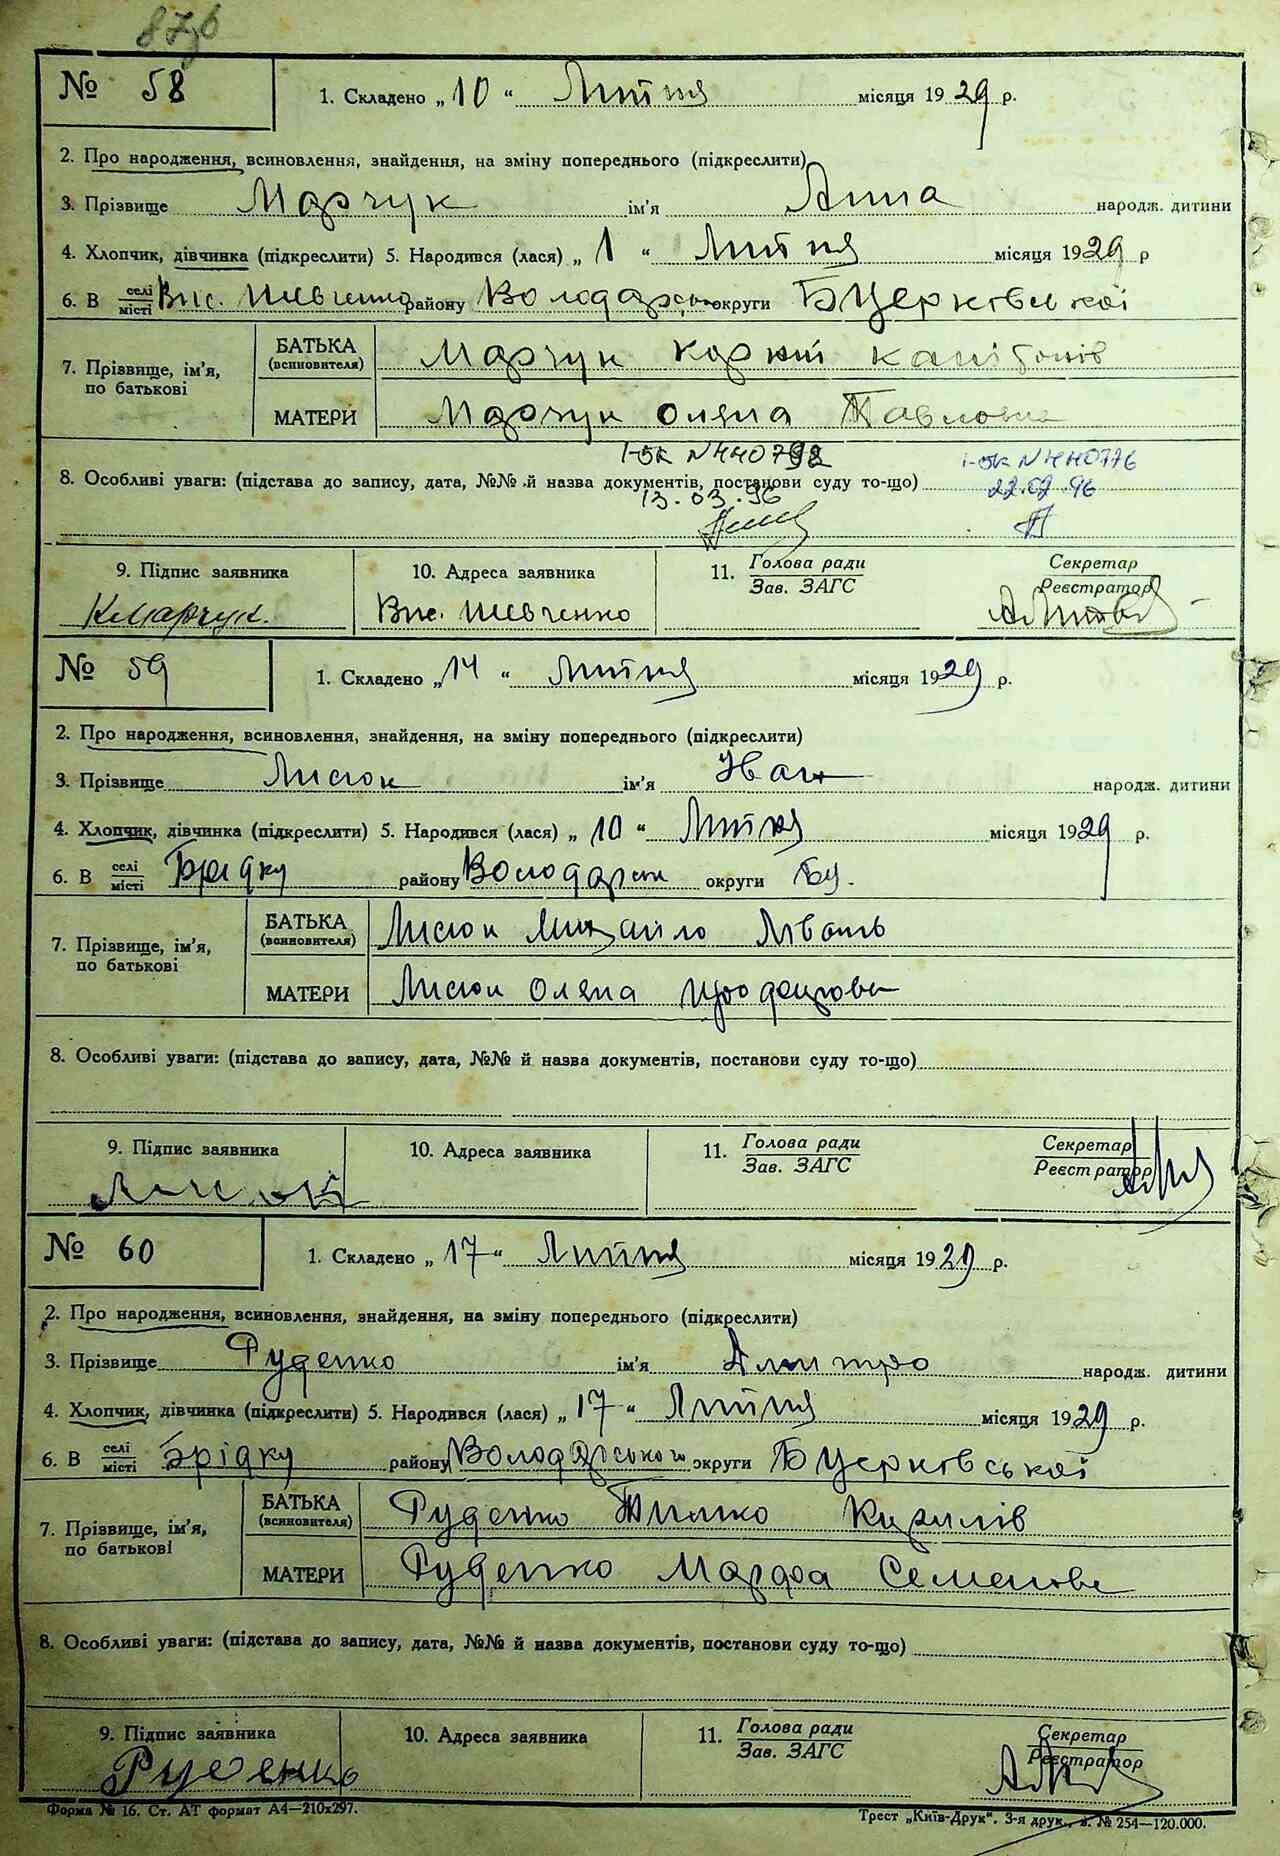 № 58
1. Складено „ 10 “ Липня місяця 1929 р.
2. Про народження, всиновлення, знайдення, на зміну попереднього (підкреслити)
3. Прізвище Марчук ім'я Анна народж. дитини
4. Хлопчик, дівчинка (підкреслити) 5. Народився (лася) „ 1 “ Липня місяця 1929 р
6. В селі місті Вис. Шевченко району Володарсь округи Бцерківської
7. Прізвище, ім'я, по батькові
БАТЬКА (всиновителя) Марчук Корній Капітонів
МАТЕРИ Марчук Оляна Павловна
І-БК N440798 І-БК N440776
8. Особливі уваги: (підстава до запису, дата, №№ й назва документів, постанови суду то-що)
13.03.96 22.02.96
9. Підпис заявника 10. Адреса заявника 11. Голова ради Зав. ЗАГС Секретар Реєстратор
КМарчук. Вис. Шевченко
№ 59
1. Складено „ 14 “ Липня місяця 1929 р.
2. Про народження, всиновлення, знайдення, на зміну попереднього (підкреслити)
3. Прізвище Лисюк ім'я Іван народж. дитини
4. Хлопчик, дівчинка (підкреслити) 5. Народився (лася) „ 10 “ Липня місяця 1929 р.
6. В селі місті Брідку району Володарськ округи Бц.
7. Прізвище, ім'я, по батькові
БАТЬКА (всиновителя) Лисюк Михайло
МАТЕРИ Лисюк Оляна
8. Особливі уваги: (підстава до запису, дата, №№ й назва документів, постанови суду то-що)
9. Підпис заявника 10. Адреса заявника 11. Голова ради Зав. ЗАГС Секретар Реєстратор
№ 60
1. Складено „ 17 “ Липня місяця 1929 р.
2. Про народження, всиновлення, знайдення, на зміну попереднього (підкреслити)
3. Прізвище Руденко ім'я Дмитро народж. дитини
4. Хлопчик, дівчинка (підкреслити) 5. Народився (лася) „ 17 “ Липня місяця 1929 р.
6. В селі місті Брідку району Володарського округи Бцерківської
7. Прізвище, ім'я, по батькові
БАТЬКА (всиновителя) Руденко Тимко Кирилів
МАТЕРИ Руденко Марфа Семенова
8. Особливі уваги: (підстава до запису, дата, №№ й назва документів, постанови суду то-що)
9. Підпис заявника 10. Адреса заявника 11. Голова ради Зав. ЗАГС Секретар Реєстратор
Руденко
Форма № 16. Ст. АТ формат А4—210х297. Трест „Київ-Друк“. 3-я друк., з. № 254—120.000.